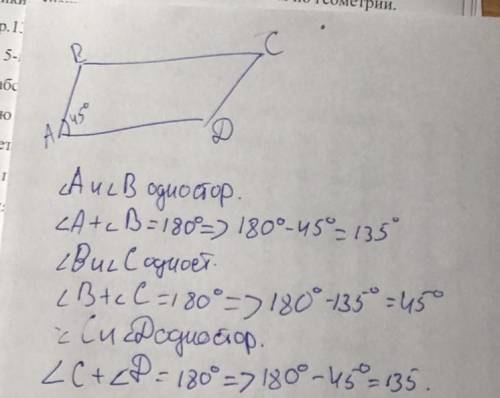 по геометрии.
5-
B
C
45°
A
D
∠A и ∠B одностор.
∠A+∠B=180°=>180°-45°=135°
∠B и ∠C одност.
∠B+∠C=180°=>180°-135°=45°
∠C и ∠D одностор.
∠C+∠D=180°=>180°-45°=135.